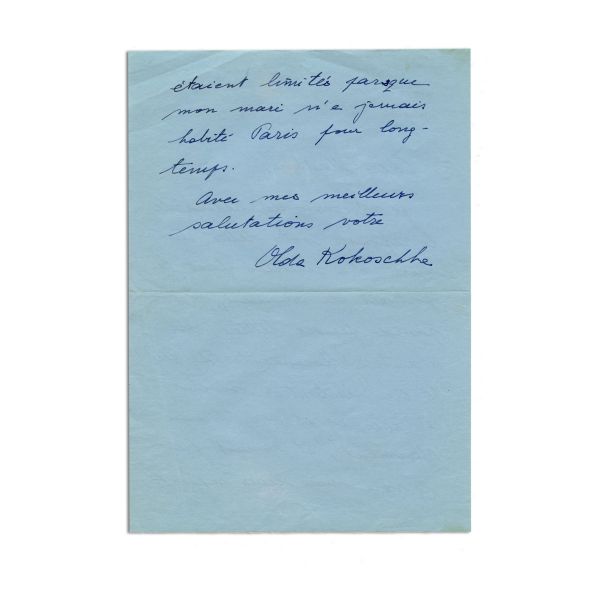 étaient limités parsque
mon mari n'a jamais
habité Paris pour long-
temps.
Avec mes meilleurs
salutations votre
Olda Kokoschka